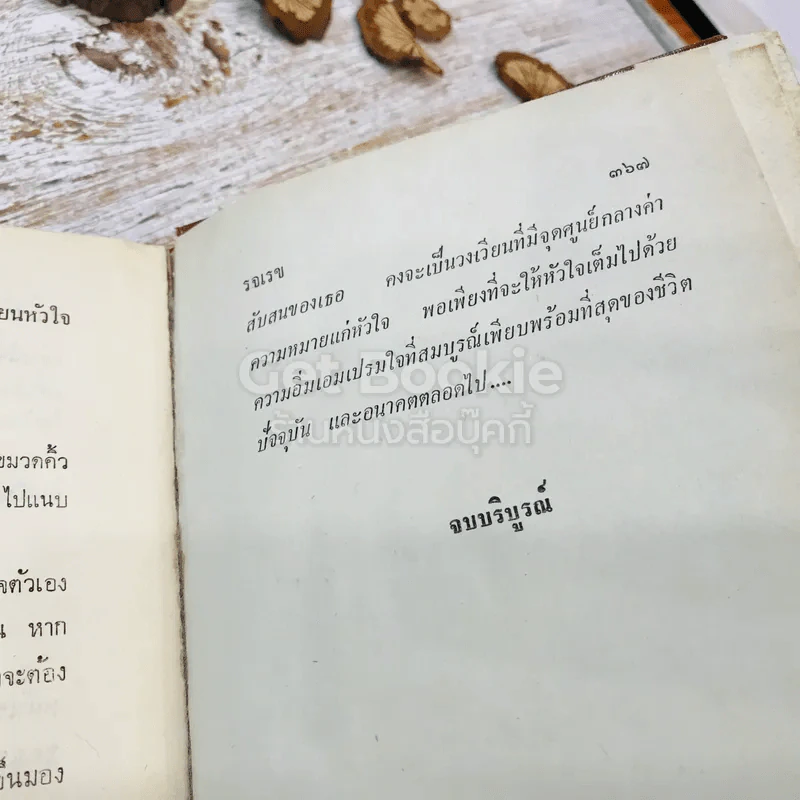 ยนหัวใจ
ขมวดคิ้ว
ไปแนบ
จตัวเอง
น หาก
จะต้อง
ขึ้นมอง
๓๖๗
รจเรข
สับสนของเธอ คงจะเป็นวงเวียนที่มีจุดศูนย์กลางค่า
ความหมายแก่หัวใจ พอเพียงที่จะให้หัวใจเต็มไปด้วย
ความอิ่มเอมเปรมใจที่สมบูรณ์เพียบพร้อมที่สุดของชีวิต
ปัจจุบัน และอนาคตตลอดไป....
จบบริบูรณ์
Get Bookie
ร้านหนังสือบุ๊คกี้